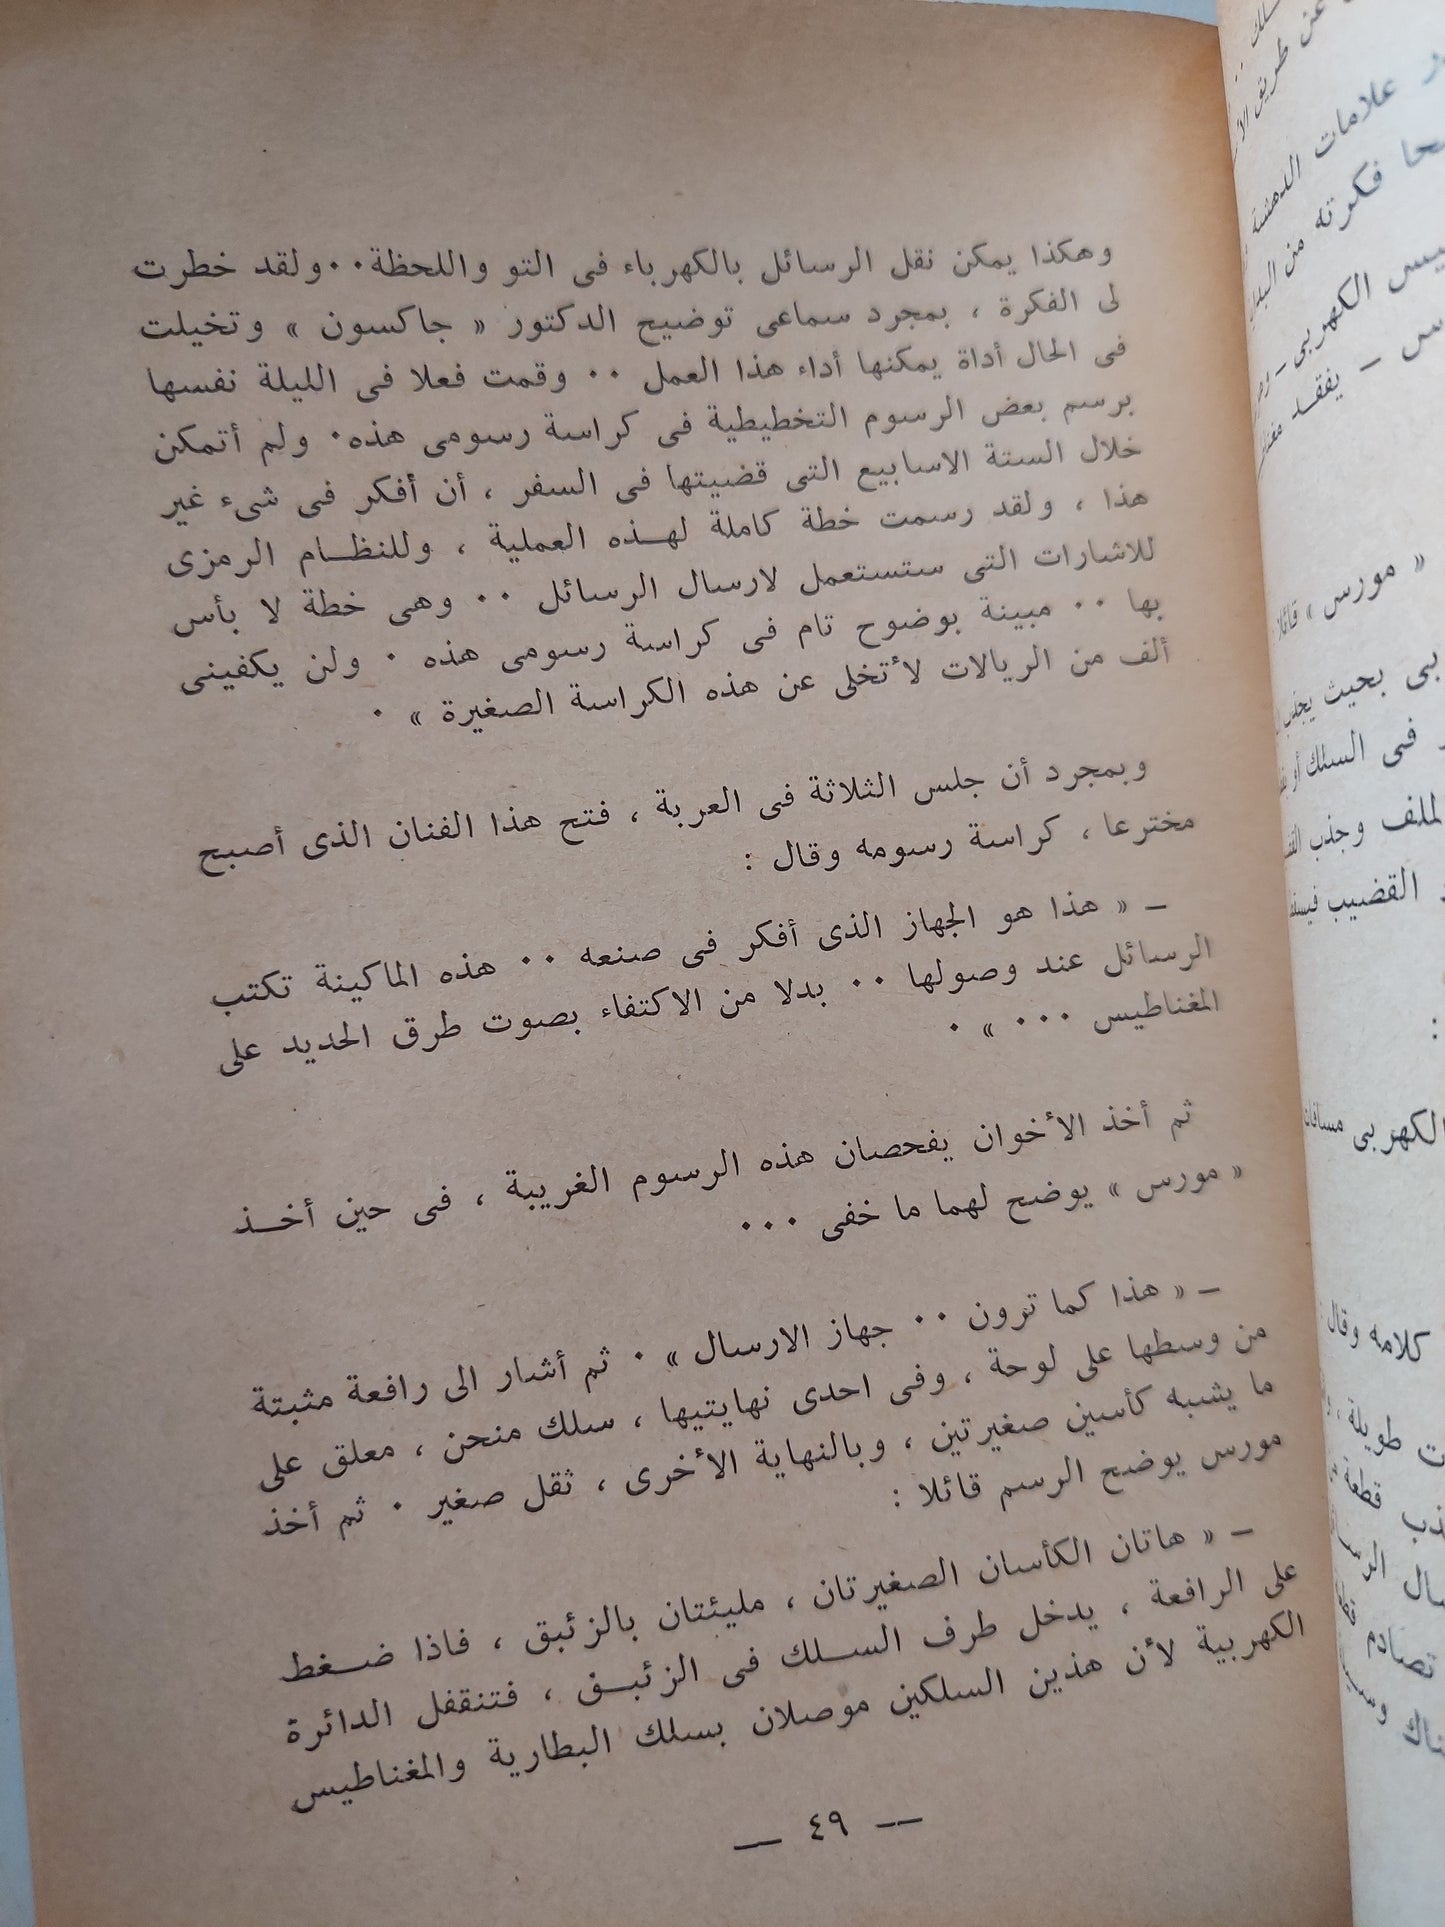 وهكذا يمكن نقل الرسائل بالكهرباء فى التو واللحظة ٠٠ ولقد خطرت
لى الفكرة ، بمجرد سماعى توضيح الدكتور « جاكسون » وتخيلت
فى الحال أداة يمكنها أداء هذا العمل ٠٠ وقمت فعلا فى الليلة نفسها
برسم بعض الرسوم التخطيطية فى كراسة رسومى هذه ٠ ولم أتمكن
خلال الستة الاسابيع التى قضيتها فى السفر ، أن أفكر فى شىء غير
هذا ، ولقد رسمت خطة كاملة لهذه العملية ، وللنظام الرمزى
للاشارات التى ستستعمل لارسال الرسائل ٠٠ وهى خطة لا بأس
بها ٠٠ مبينة بوضوح تام فى كراسة رسومى هذه ٠ ولن يكفينى
ألف من الريالات لأتخلى عن هذه الكراسة الصغيرة » ٠
وبمجرد أن جلس الثلاثة فى العربة ، فتح هذا الفنان الذى أصبح
مخترعا ، كراسة رسومه وقال :
– « هذا هو الجهاز الذى أفكر فى صنعه ٠٠ هذه الماكينة تكتب
الرسائل عند وصولها ٠٠ بدلا من الاكتفاء بصوت طرق الحديد على
المغناطيس ٠٠٠ » ٠
ثم أخذ الأخوان يفحصان هذه الرسوم الغريبة ، فى حين أخذ
« مورس » يوضح لهما ما خفى ٠٠٠
– « هذا كما ترون ٠٠ جهاز الارسال » ٠ ثم أشار الى رافعة مثبتة
من وسطها على لوحة ، وفى احدى نهايتيها ، سلك منحن ، معلق على
ما يشبه كأسين صغيرتين ، وبالنهاية الأخرى ، ثقل صغير ٠ ثم أخذ
مورس يوضح الرسم قائلا :
– « هاتان الكأسان الصغيرتان ، مليئتان بالزئبق ، فاذا ضغط
على الرافعة ، يدخل طرف السلك فى الزئبق ، فتنقفل الدائرة
الكهربية لأن هذين السلكين موصلان بسلك البطارية والمغناطيس
— ٤٩ —
عن طريق
علامات الدهشة
فكرته من
الكهربى –
– يفقد
« مورس » قائلا
بحيث
فى السلك أو
وجذب
القضيب
:
الكهربى
كلامه وقال
طويلة
قطعة
تصادم